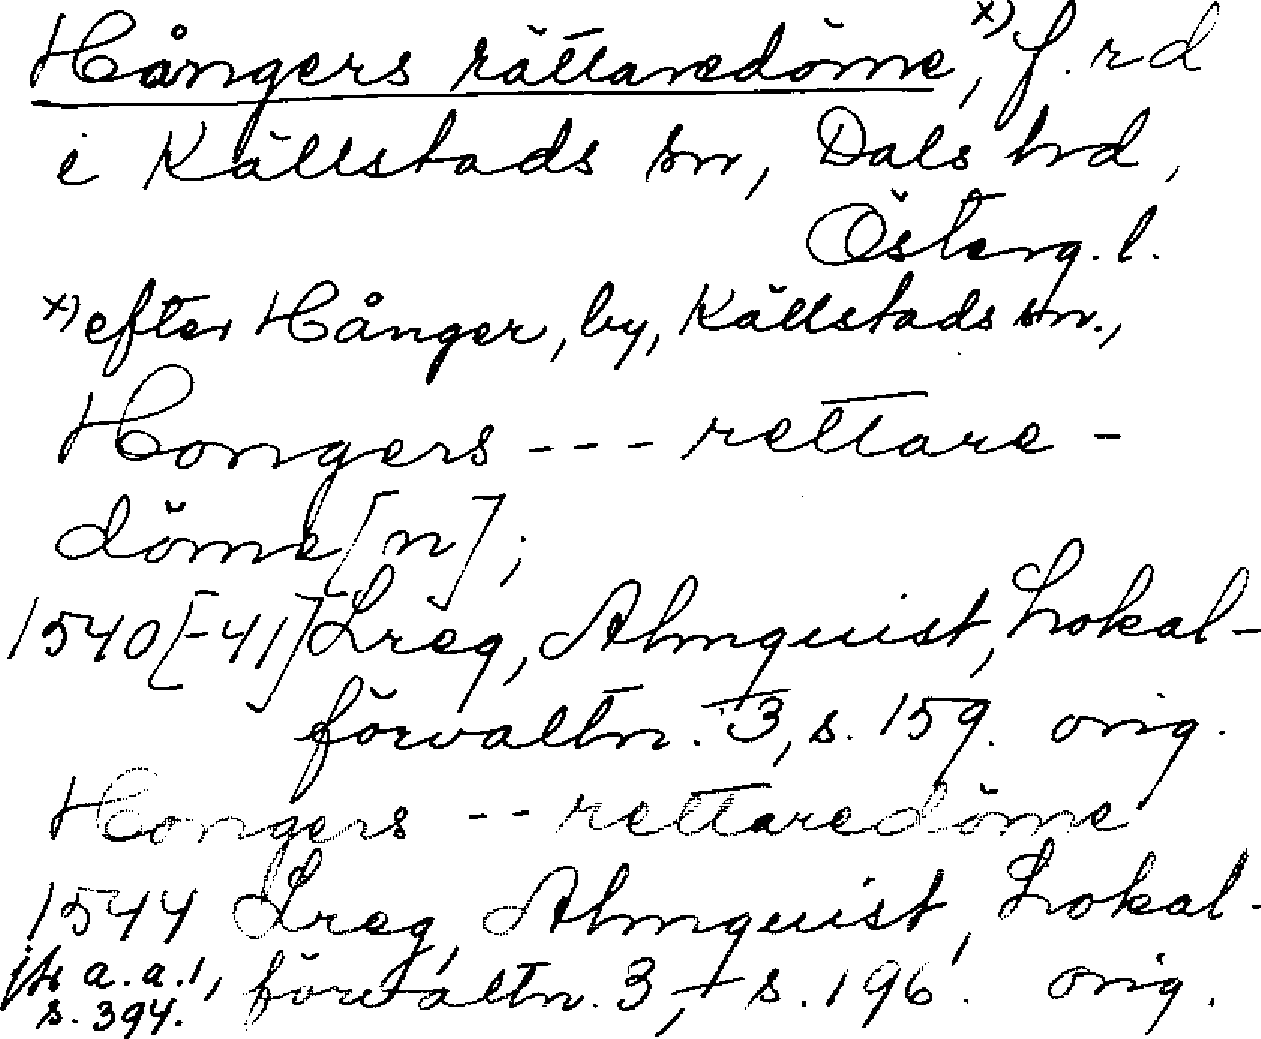 Hångers rättaredöme,ˣ⁾ f.rd
i Källstads sn, Dals hd,
Österg.l.
ˣ⁾ efter Hånger, by, Källstads sn.,
Hongers --- rettare-
döme[n];
1540[-41] Lreg, Almquist, Lokal-
förvaltn. 3, s. 159. orig.
Hongers -- rettaredöme
1544 Lreg, Almquist, Lokal-
förvaltn. 3, s. 196. orig.
jfr a.a.1,
s. 394.